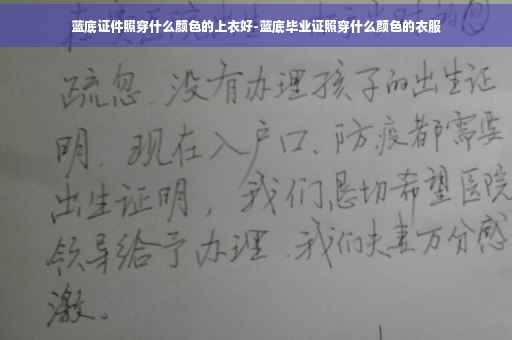 蓝底证件照穿什么颜色的上衣好-蓝底毕业证照穿什么颜色的衣服
疏忽、没有办理孩子的出生证
明、现在入户口、防疫都需要
出生证明，我们恳切希望医院
领导给予办理、我们夫妻万分感
激。